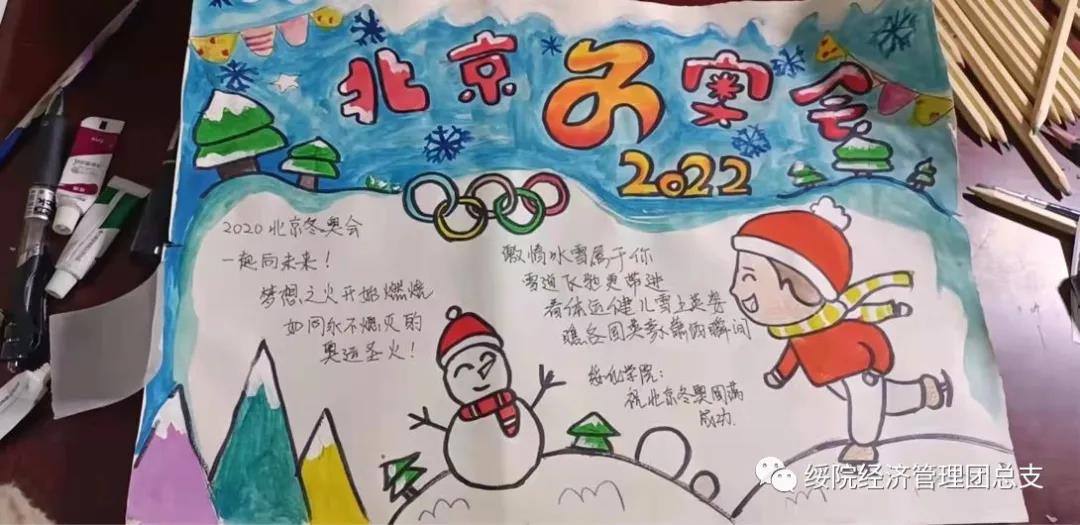 北京冬奥会
2022
2020北京冬奥会
一起向未来！
梦想之火开始燃烧
如同永不熄灭的
奥运圣火！
激情冰雪属于你
雪道飞驰更带进
看体运健儿雪上英姿
瞧各国英豪 瞬间
绥化学院：
祝北京冬奥圆满
成功.
绥院经济管理团总支